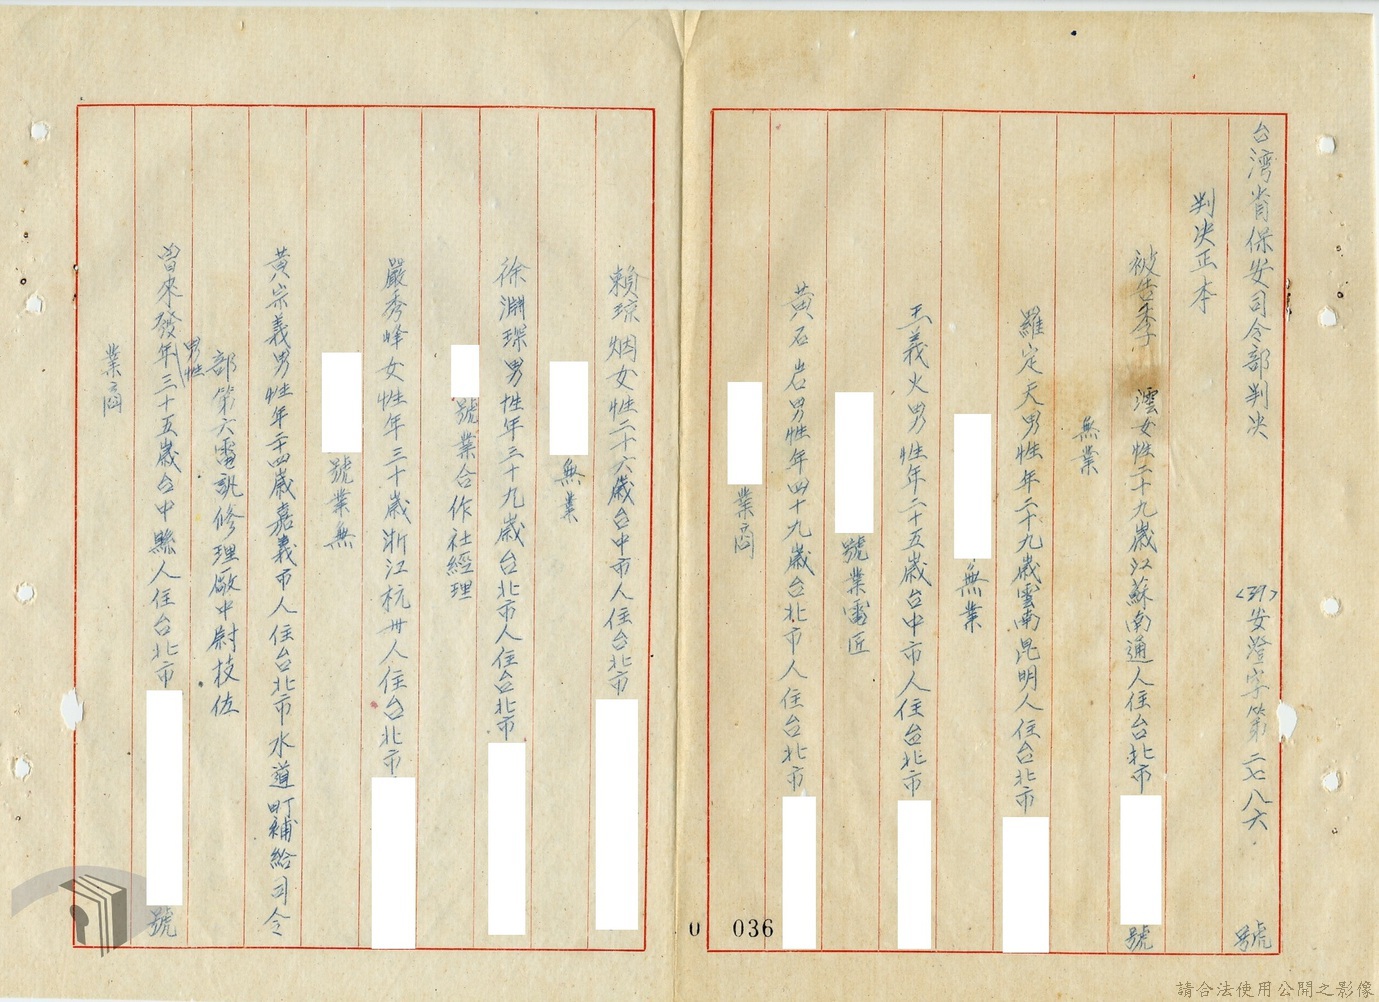 台湾省保安司令部判决 (39)安澄字第二七八六號
判决正本
被告李 澐女性二十九歲江蘇南通人住台北市 號
無業
羅定天男性年二十九歲雲南昆明人住台北市
無業
王義火男性年二十五歲台中市人住台北市
號業電匠
黃石岩男性年四十九歲台北市人住台北市
業商
賴琼烟女性二十六歲台中市人住台北市
無業
徐淵琛男性年三十九歲台北市人住台北市
號業合作社經理
嚴秀峰女性年三十歲浙江杭州人住台北市
號業無
黃宗義男性年二十四歲嘉義市人住台北市水道町補給司令
部第六電訊修理廠中尉技佐
曾來發男性年三十五歲台中縣人住台北市 號
業商
0 036
請合法使用公開之影像